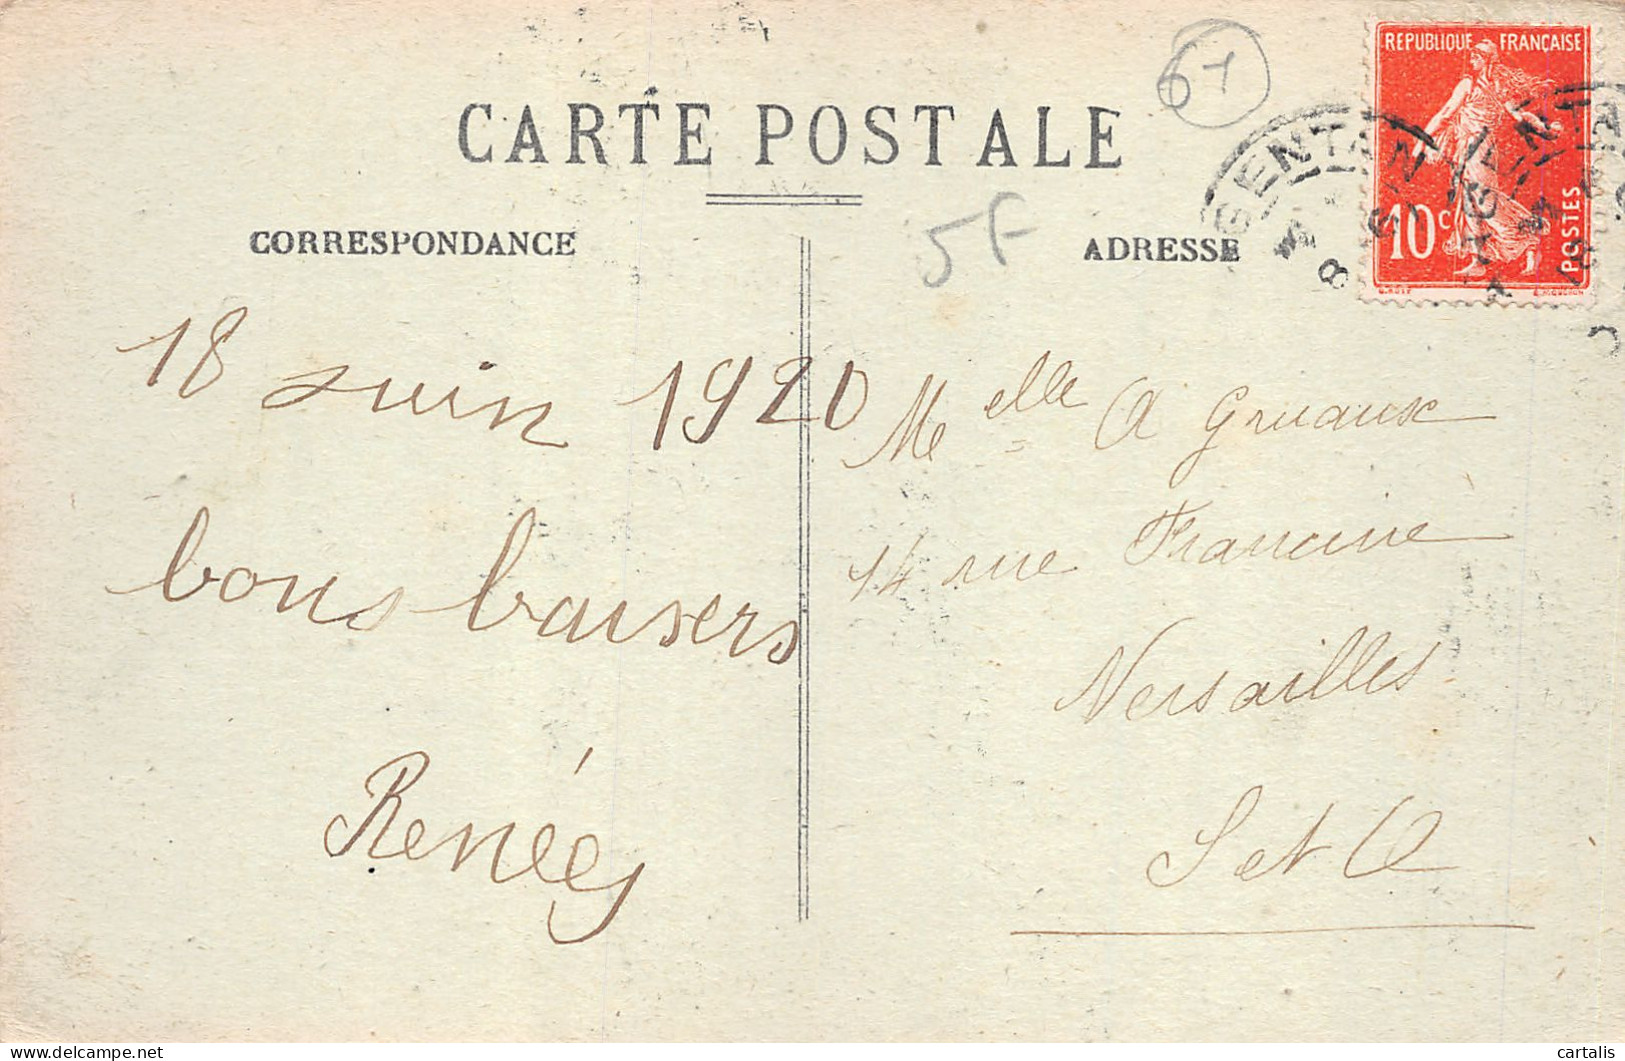 CARTE POSTALE
CORRESPONDANCE
ADRESSE
REPUBLIQUE FRANÇAISE
10c
POSTES
61
5F
18 Juin 1920
bons baisers
Renée
Melle A Gruaux
14 rue Francine
Versailles
S et O
cartalis